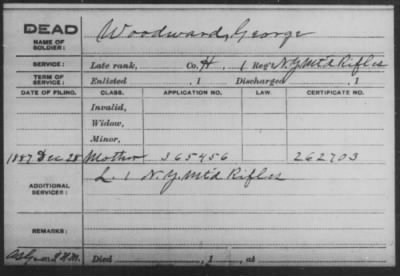 DEAD
NAME OF SOLDIER:
Woodward, George
SERVICE: Late rank, Co. H, 1 Reg't N.Y. Mt'd Rifles
TERM OF SERVICE: Enlisted , 1 Discharged , 1
DATE OF FILING. CLASS. APPLICATION NO. LAW. CERTIFICATE NO.
Invalid,
Widow,
Minor,
1887 Dec 28 Mother 365456 262703
ADDITIONAL SERVICES: L. 1 N.Y. Mt'd Rifles
REMARKS:
Died , 1 , at